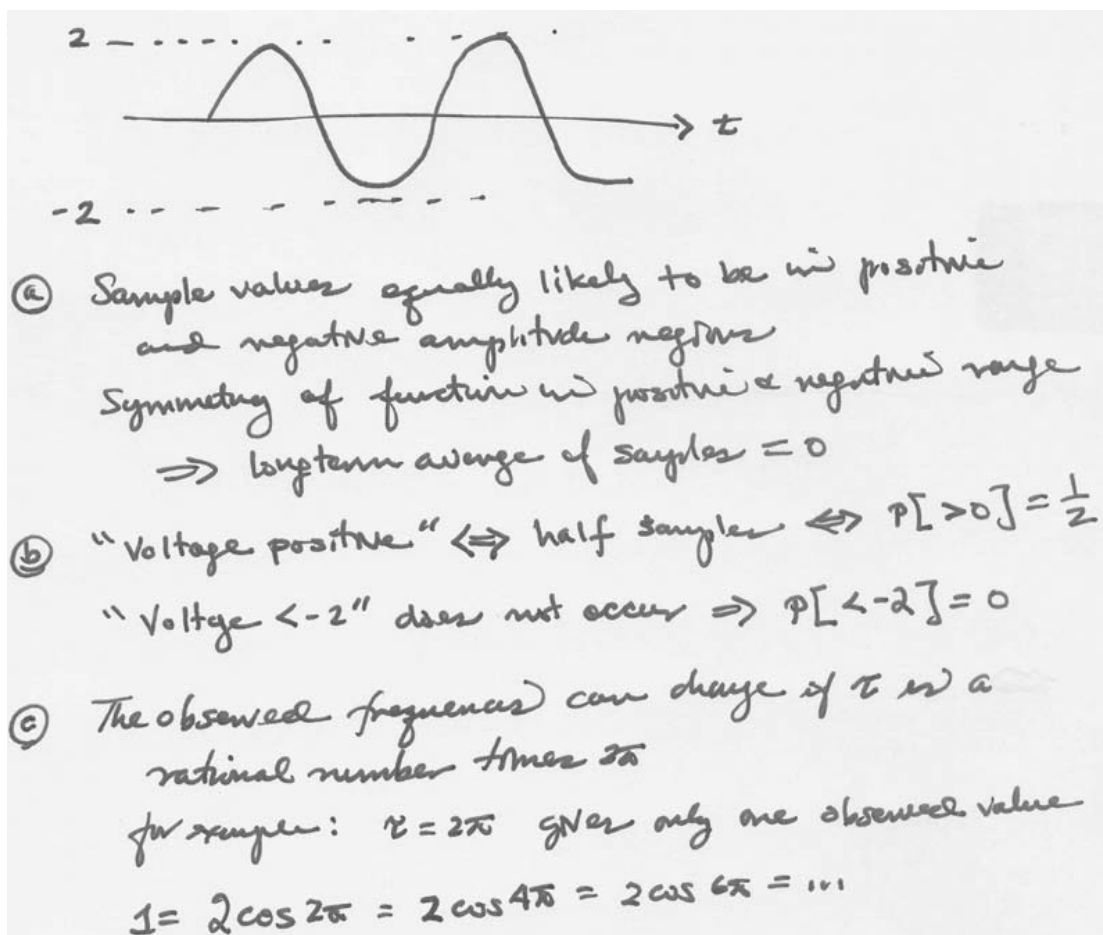 2
t
-2
ⓐ Sample values equally likely to be in positive
and negative amplitude regions
Symmetry of function in positive & negative range
⇒ long term average of samples = 0
ⓑ "Voltage positive" ⇔ half samples ⇔ P[>0] = 1/2
"Voltge <-2" does not occur ⇒ P[<-2] = 0
ⓒ The observed frequencies can change if τ is a
rational number times 2π
for example: τ = 2π gives only one observed value
1 = 2 cos 2π = 2 cos 4π = 2 cos 6π = ...